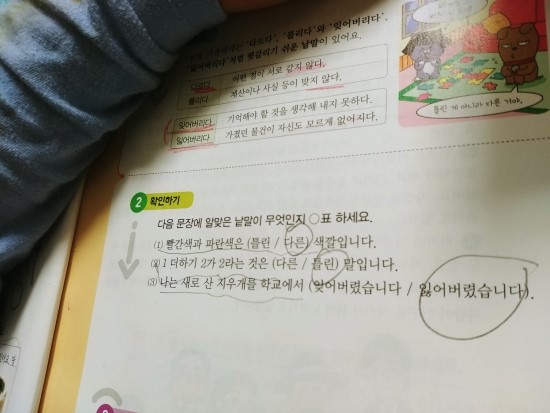 '다르다', '틀리다'와 '잊어버리다',
'잃어버리다'처럼 헷갈리기 쉬운 낱말이 있어요.
다르다 어떤 점이 서로 같지 않다.
틀리다 계산이나 사실 등이 맞지 않다.
잊어버리다 기억해야 할 것을 생각해 내지 못하다.
잃어버리다 가졌던 물건이 자신도 모르게 없어지다.
틀린 게 아니라 다른 거야.
2 확인하기
다음 문장에 알맞은 낱말이 무엇인지 ○표 하세요.
(1) 빨간색과 파란색은 (틀린 / 다른) 색깔입니다.
(2) 1 더하기 2가 2라는 것은 (다른 / 틀린) 말입니다.
(3) 나는 새로 산 지우개를 학교에서 (잊어버렸습니다 / 잃어버렸습니다).